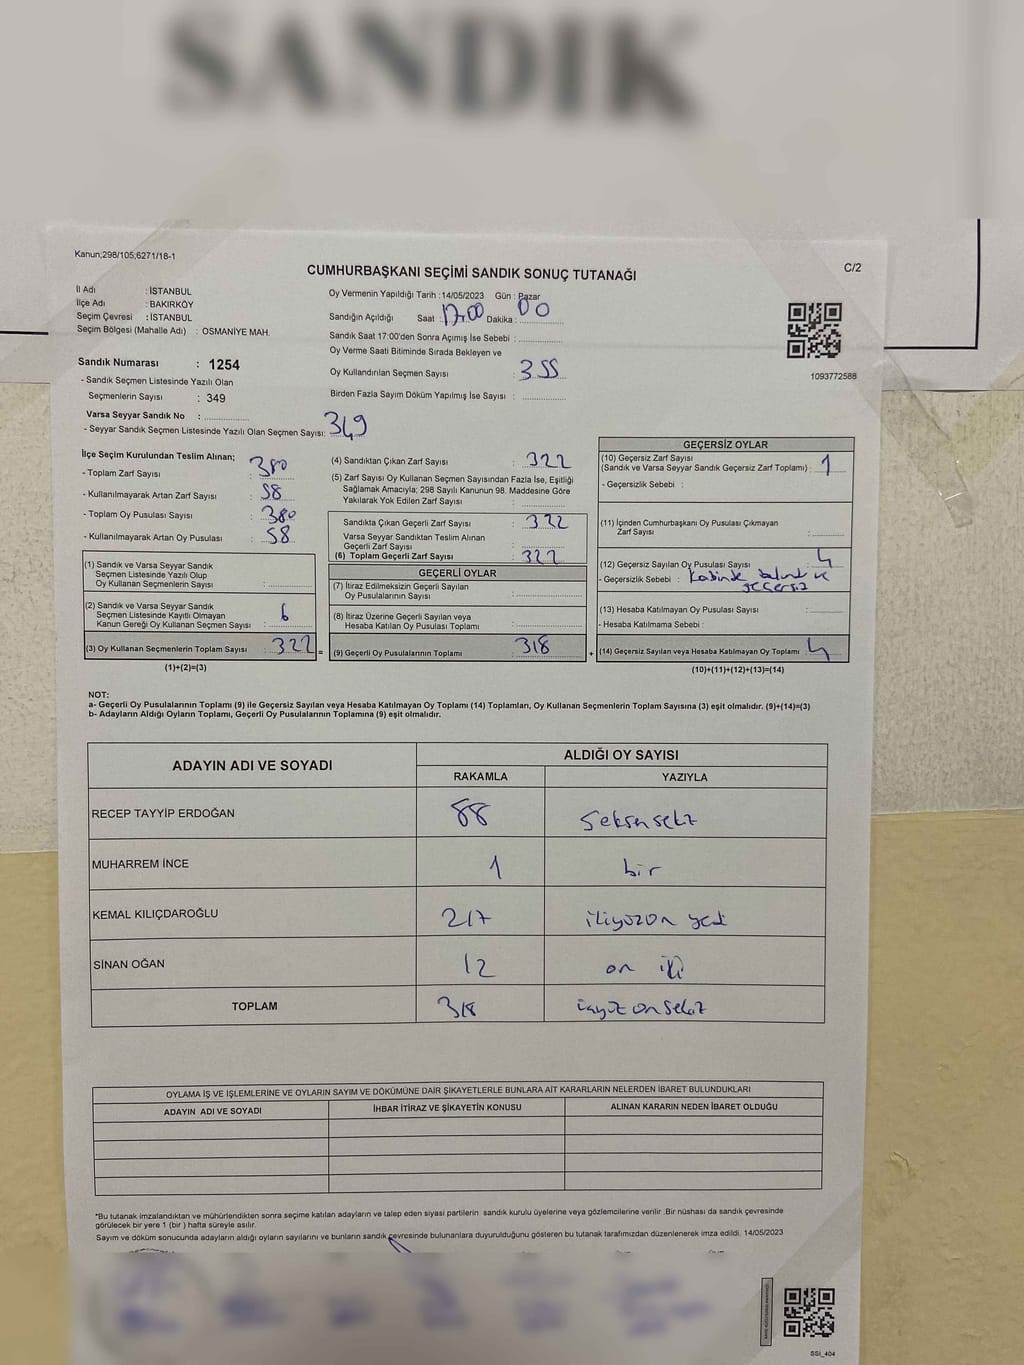 SANDIK
Kanun;298/105;6271/18-1
C/2
CUMHURBAŞKANI SEÇİMİ SANDIK SONUÇ TUTANAĞI
İl Adı : İSTANBUL
İlçe Adı : BAKIRKÖY
Seçim Çevresi : İSTANBUL
Seçim Bölgesi (Mahalle Adı) : OSMANİYE MAH.
Sandık Numarası : 1254
- Sandık Seçmen Listesinde Yazılı Olan
Seçmenlerin Sayısı : 349
Varsa Seyyar Sandık No :
- Seyyar Sandık Seçmen Listesinde Yazılı Olan Seçmen Sayısı: 349
Oy Vermenin Yapıldığı Tarih :14/05/2023 Gün : Pazar
Sandığın Açıldığı Saat : 17.00 Dakika : 00
Sandık Saat 17:00'den Sonra Açımış İse Sebebi :
Oy Verme Saati Bitiminde Sırada Bekleyen ve
Oy Kullandırılan Seçmen Sayısı : 355
Birden Fazla Sayım Döküm Yapılmış İse Sayısı :
1093772588
İlçe Seçim Kurulundan Teslim Alınan;
- Toplam Zarf Sayısı : 380
- Kullanılmayarak Artan Zarf Sayısı : 58
- Toplam Oy Pusulası Sayısı : 380
- Kullanılmayarak Artan Oy Pusulası : 58
(1) Sandık ve Varsa Seyyar Sandık
Seçmen Listesinde Yazılı Olup
Oy Kullanan Seçmenlerin Sayısı :
(2) Sandık ve Varsa Seyyar Sandık
Seçmen Listesinde Kayıtlı Olmayan
Kanun Gereği Oy Kullanan Seçmen Sayısı : 6
(3) Oy Kullanan Seçmenlerin Toplam Sayısı : 322 =
(1)+(2)=(3)
(4) Sandıktan Çıkan Zarf Sayısı : 322
(5) Zarf Sayısı Oy Kullanan Seçmen Sayısından Fazla İse, Eşitliği
Sağlamak Amacıyla; 298 Sayılı Kanunun 98. Maddesine Göre
Yakılarak Yok Edilen Zarf Sayısı :
Sandıkta Çıkan Geçerli Zarf Sayısı : 322
Varsa Seyyar Sandıktan Teslim Alınan
Geçerli Zarf Sayısı :
(6) Toplam Geçerli Zarf Sayısı : 322
GEÇERLİ OYLAR
(7) İtiraz Edilmeksizin Geçerli Sayılan
Oy Pusulalarının Sayısı :
(8) İtiraz Üzerine Geçerli Sayılan veya
Hesaba Katılan Oy Pusulası Toplamı :
(9) Geçerli Oy Pusulalarının Toplamı : 318 +
GEÇERSİZ OYLAR
(10) Geçersiz Zarf Sayısı
(Sandık ve Varsa Seyyar Sandık Geçersiz Zarf Toplamı) : 1
- Geçersizlik Sebebi :
(11) İçinden Cumhurbaşkanı Oy Pusulası Çıkmayan
Zarf Sayısı :
(12) Geçersiz Sayılan Oy Pusulası Sayısı : 4
- Geçersizlik Sebebi : ve
geçersiz
(13) Hesaba Katılmayan Oy Pusulası Sayısı :
- Hesaba Katılmama Sebebi :
(14) Geçersiz Sayılan veya Hesaba Katılmayan Oy Toplamı : 4
(10)+(11)+(12)+(13)=(14)
NOT:
a- Geçerli Oy Pusulalarının Toplamı (9) ile Geçersiz Sayılan veya Hesaba Katılmayan Oy Toplamı (14) Toplamları, Oy Kullanan Seçmenlerin Toplam Sayısına (3) eşit olmalıdır. (9)+(14)=(3)
b- Adayların Aldığı Oyların Toplamı, Geçerli Oy Pusulalarının Toplamına (9) eşit olmalıdır.
ADAYIN ADI VE SOYADI ALDIĞI OY SAYISI
RAKAMLA YAZIYLA
RECEP TAYYİP ERDOĞAN 88 Seksensekiz
MUHARREM İNCE 1 bir
KEMAL KILIÇDAROĞLU 217 ikiyüzon yedi
SİNAN OĞAN 12 on iki
TOPLAM 318 üçyüz onsekiz
OYLAMA İŞ VE İŞLEMLERİNE VE OYLARIN SAYIM VE DÖKÜMÜNE DAİR ŞİKAYETLERLE BUNLARA AİT KARARLARIN NELERDEN İBARET BULUNDUKLARI
ADAYIN ADI VE SOYADI İHBAR İTİRAZ VE ŞİKAYETİN KONUSU ALINAN KARARIN NEDEN İBARET OLDUĞU
*Bu tutanak imzalandıktan ve mühürlendikten sonra seçime katılan adayların ve talep eden siyasi partilerin sandık kurulu üyelerine veya gözlemcilerine verilir .Bir nüshası da sandık çevresinde
görülecek bir yere 1 (bir ) hafta süreyle asılır.
Sayım ve döküm sonucunda adayların aldığı oyların sayılarını ve bunların sandık çevresinde bulunanlara duyurulduğunu gösteren bu tutanak tarafımızdan düzenlenerek imza edildi. 14/05/2023
SSİ_404